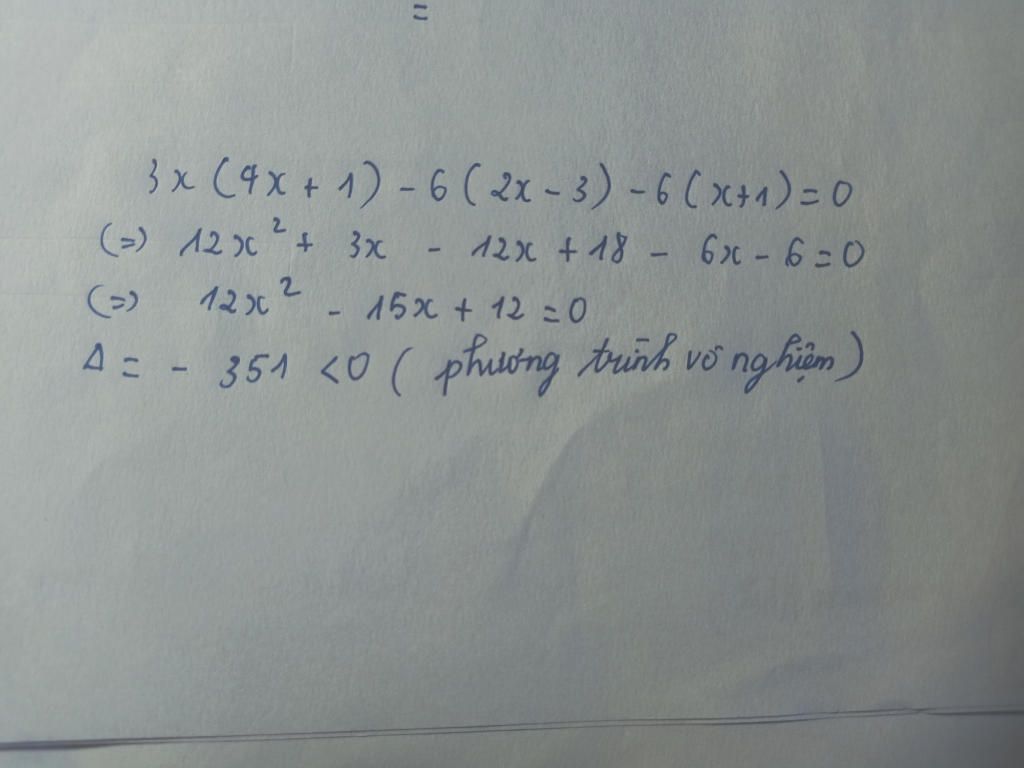 =
3x (4x + 1) - 6 ( 2x - 3) - 6 ( x+1) = 0
(=) 12x² + 3x - 12x + 18 - 6x - 6 = 0
(=) 12x² - 15x + 12 = 0
Δ = - 351 < 0 ( phương trình vô nghiệm )